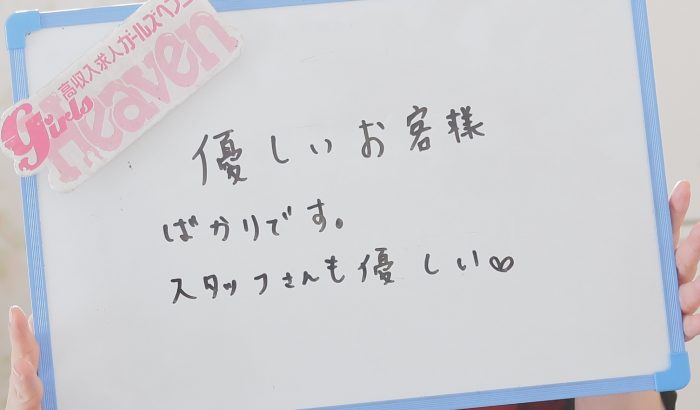 高収入求人ガールズヘブン
Girls
Heaven
優しいお客様
ばかりです。
スタッフさんも優しい♡